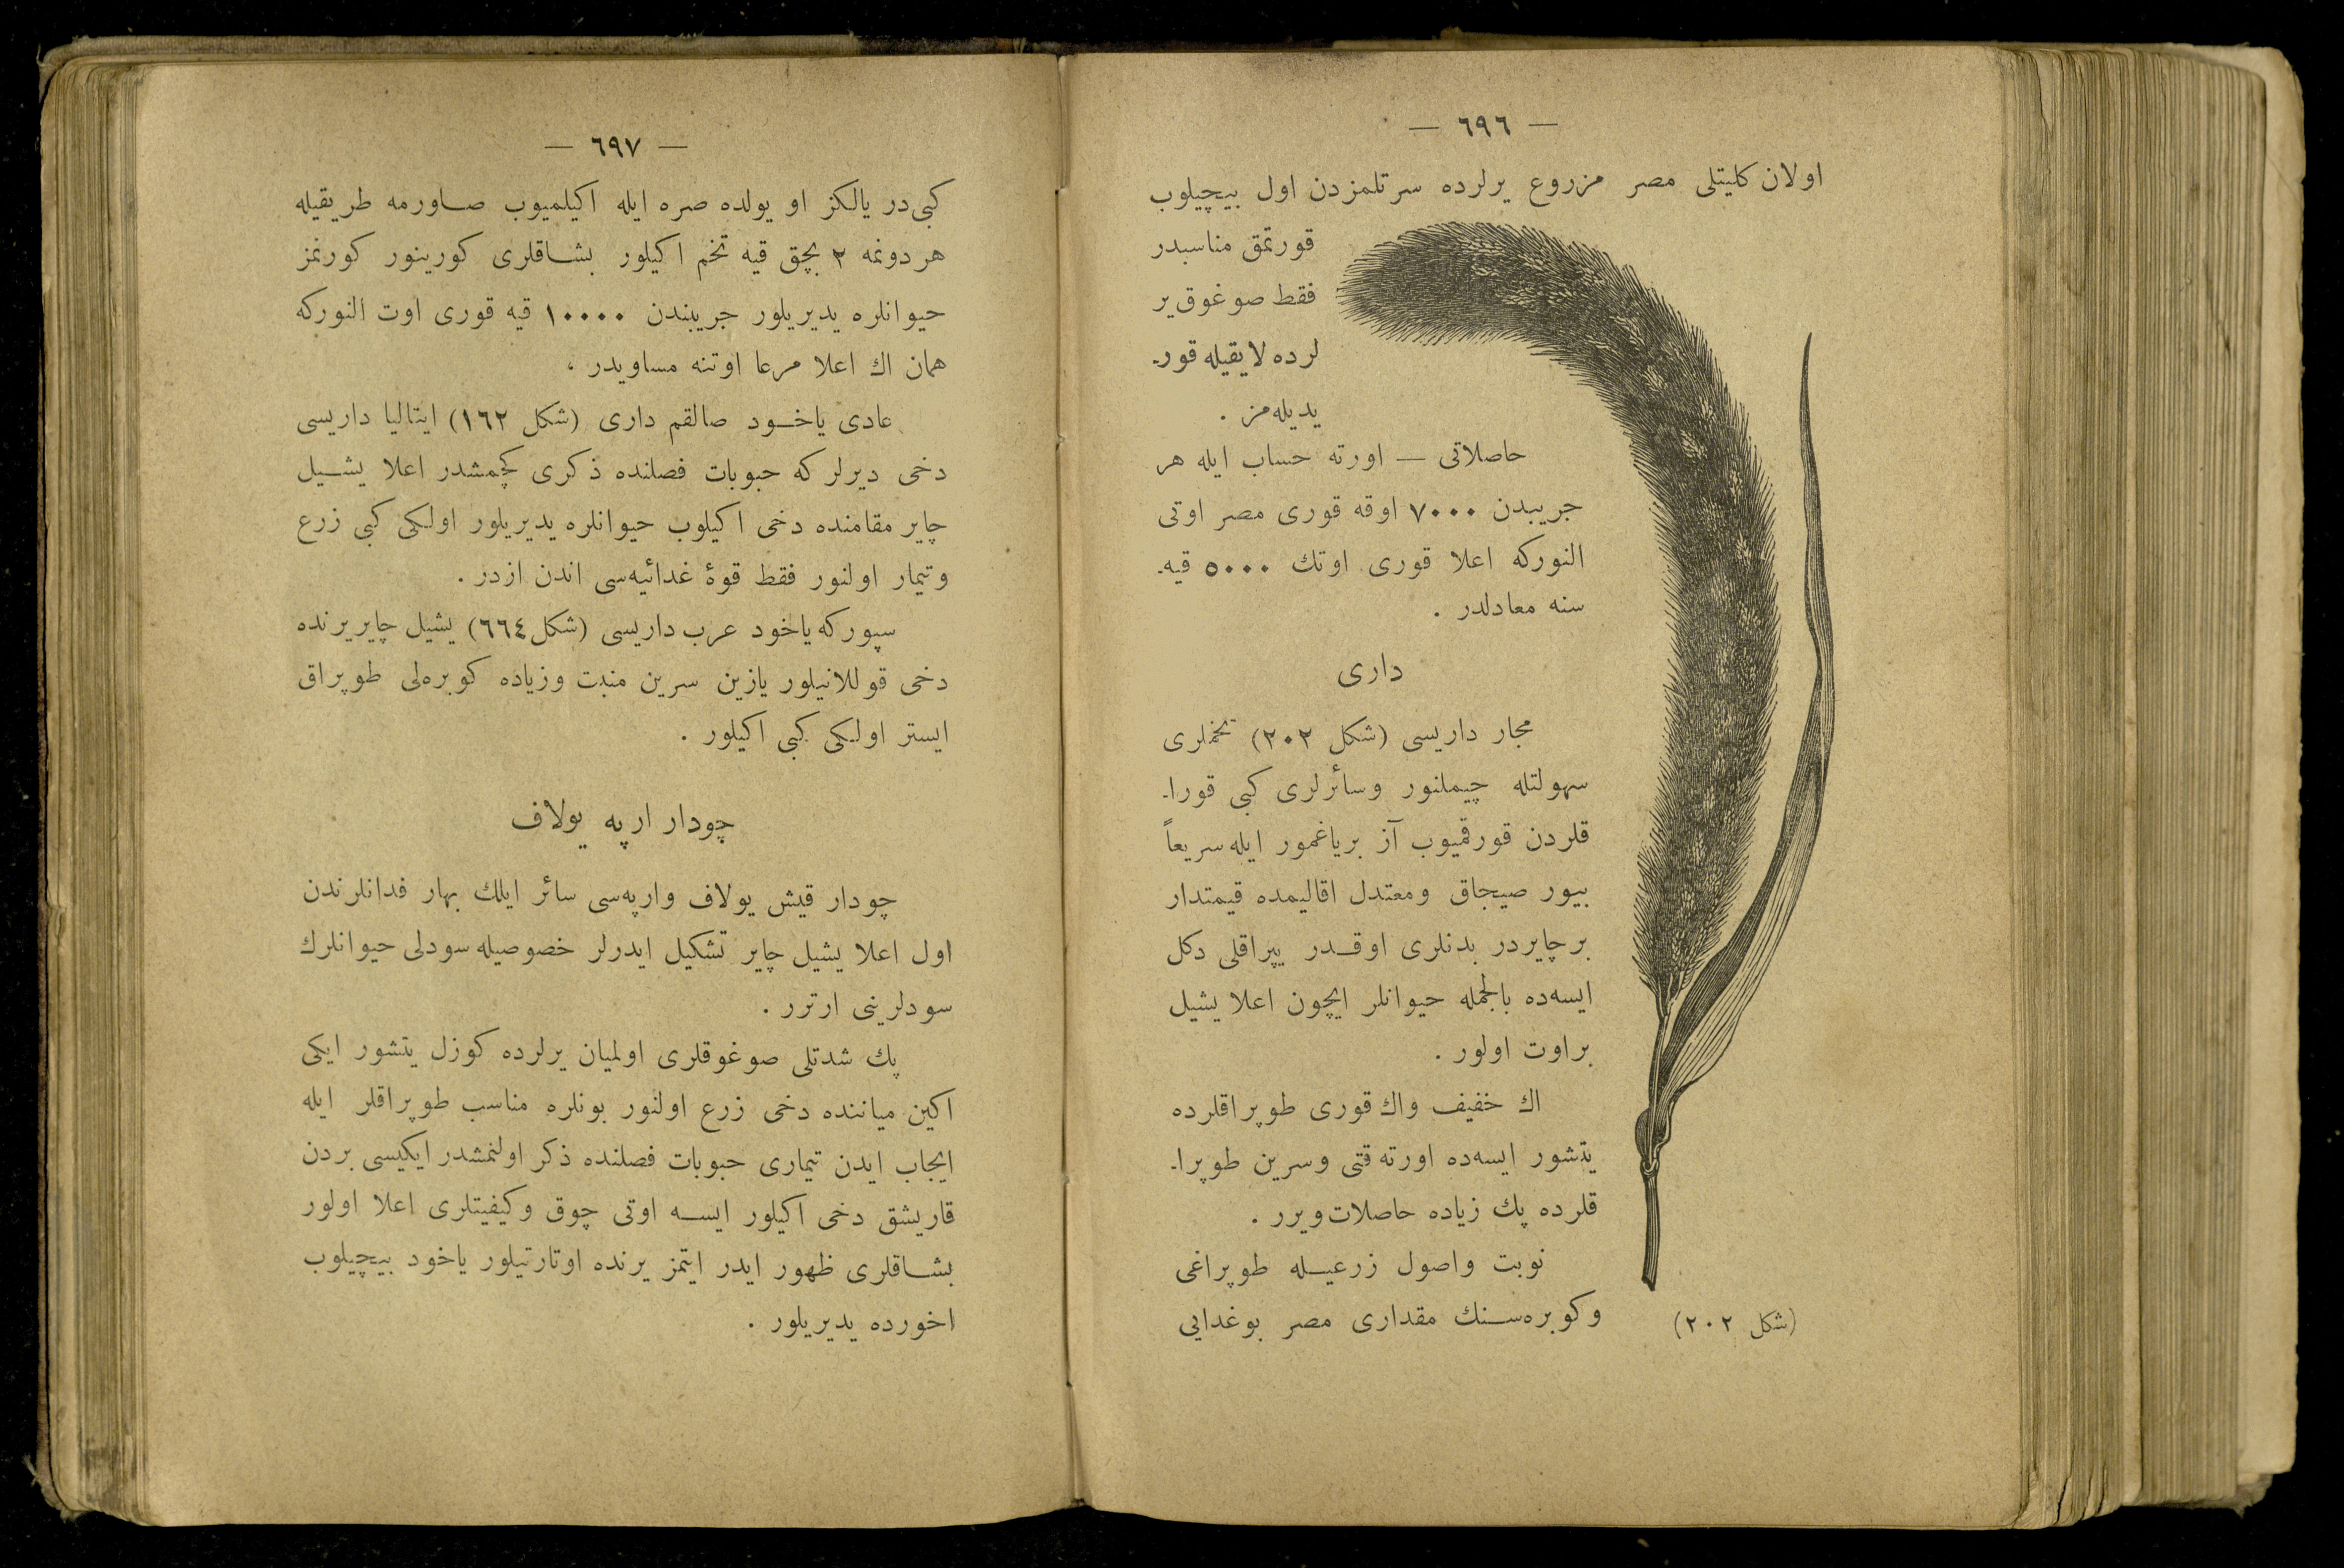 — ٦٩٦ —
اولان كليتلی مصر مزروع يرلرده سرتلمزدن اول بيچيلوب
قورتمق مناسبدر
فقط صوغوق ير
لرده لايقيله قور-
يديله‌مز .
حاصلاتی — اورته حساب ايله هر
جريبدن ٧٠٠٠ اوقه قوری مصر اوتی
النوركه اعلا قوری اوتك ٥٠٠٠ قيه-
سنه معادلدر .
داری
مجار داريسی (شكل ٢٠٢) تخملری
سهولتله چيملنور وسائرلری كبی قورا-
قلردن قورقميوب آز برياغمور ايله سريعاً
بيور صيجاق ومعتدل اقاليمده قيمتدار
برچايردر بدنلری اوقدر يپراقلی دكل
ايسه‌ده بالجمله حيوانلر ايچون اعلا يشيل
براوت اولور .
اك خفيف واك قوری طوپراقلرده
يتشور ايسه‌ده اورته قتی وسرين طوپرا-
قلرده پك زياده حاصلات ويرر .
نوبت واصول زرعيله طوپراغی
وكوبره‌سنك مقداری مصر بوغدايی
(شكل ٢٠٢)
— ٦٩٧ —
كبی‌در يالكز او يولده صره ايله اكيلميوب صاورمه طريقيله
هر دونمه ٢ بچق قيه تخم اكيلور بشاقلری كورينور كورنمز
حيوانلره يديريلور جريبندن ١٠٠٠٠ قيه قوری اوت النوركه
همان اك اعلا مرعا اوتنه مساويدر ،
عادی ياخود صالقم داری (شكل ١٦٢) ايتاليا داريسی
دخی ديرلر كه حبوبات فصلنده ذكری كچمشدر اعلا يشيل
چاير مقامنده دخی اكيلوب حيوانلره يديريلور اولكی كبی زرع
وتيمار اولنور فقط قوۀ غدائيه‌سی اندن ازدر .
سپوركه ياخود عرب داريسی (شكل ٦٦٤) يشيل چايريرنده
دخی قوللانيلور يازين سرين منبت وزياده كوبره‌لی طوپراق
ايستر اولكی كبی اكيلور .
چودار ارپه يولاف
چودار قيش يولاف وارپه‌سی سائر ايلك بهار فدانلرندن
اول اعلا يشيل چاير تشكيل ايدرلر خصوصيله سودلی حيوانلرك
سودلرينی ارترر .
پك شدتلی صوغوقلری اولميان يرلرده كوزل يتشور ايكی
اكين مياننده دخی زرع اولنور بونلره مناسب طوپراقلر ايله
ايجاب ايدن تيماری حبوبات فصلنده ذكر اولنمشدر ايكيسی بردن
قاريشق دخی اكيلور ايسه اوتی چوق وكيفيتلری اعلا اولور
بشاقلری ظهور ايدر ايتمز يرنده اوتارتيلور ياخود بيچيلوب
اخورده يديريلور .